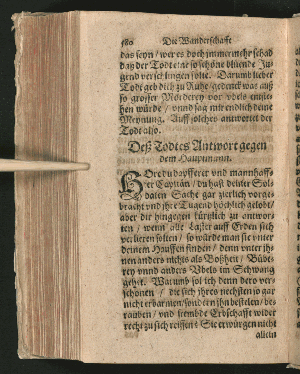 580 Die Wanderschafft
das seyn / wer es doch immermehr schad
daß der Todt eine so schöne blüende Ju-
gend verschlingen solte. Darumb lieber
Todt geb dich zu Ruhe / gedenck was auß
so grosser Mörderey vor vbels entste-
hen würde / vnnd sag mir endlich deine
Meynung. Auff solches antwortet der
Todt also.
Deß Todtes Antwort gegen
dem Hauptmann.
HOre du dapfferer vnd mannhaff-
ter Capitän / du hast deiner Sol-
daten Sache gar zierlich vorge-
bracht vnd ihre Tugend höchlich gelobt /
aber dir hingegen kürtzlich zu antwor-
ten / wenn alle Laster auff Erden sich
verlieren solten / so würde man sie vnter
deinem Hauffen finden / denn vnter ih-
nen anders nichts als Boßheit / Bübe-
rey vnnd anders Vbels im Schwang
gehet. Warumb sol ich denn dero ver-
schonen / die sich ihres nechsten so gar
nicht erbarmen / sondern ihn bestelen / be-
rauben / vnd frembde Erbschafft wider
recht zu sich reissen? Sie erwürgen nicht
allein